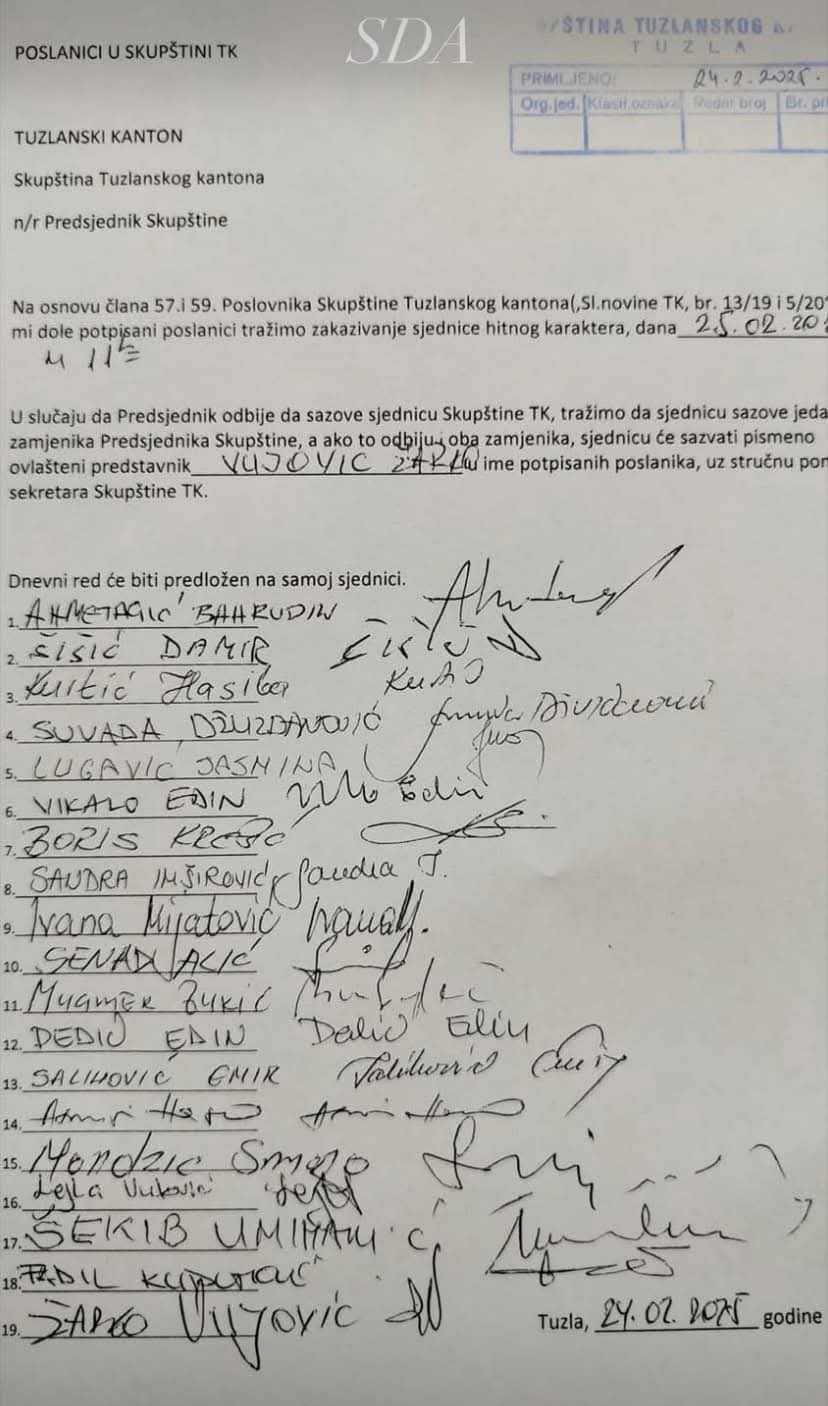 SDA
POSLANICI U SKUPŠTINI TK
ŠTINA TUZLANSKOG
TUZLA
PRIMLJENO: 24.2.2025.
Org.jed. Klasif.oznaka Redni broj Br. pri
TUZLANSKI KANTON
Skupština Tuzlanskog kantona
n/r Predsjednik Skupštine
Na osnovu člana 57.i 59. Poslovnika Skupštine Tuzlanskog kantona(,Sl.novine TK, br. 13/19 i 5/20
mi dole potpisani poslanici tražimo zakazivanje sjednice hitnog karaktera, dana 25.02.20
u 11
U slučaju da Predsjednik odbije da sazove sjednicu Skupštine TK, tražimo da sjednicu sazove jeda
zamjenika Predsjednika Skupštine, a ako to odbiju i oba zamjenika, sjednicu će sazvati pismeno
ovlašteni predstavnik VUJOVIC ŽARKO u ime potpisanih poslanika, uz stručnu pom
sekretara Skupštine TK.
Dnevni red će biti predložen na samoj sjednici.
1. AHMETAGIĆ BAHRUDIN
2. ŠIŠIĆ DAMIR
3. Kurtić Hasiba
4. SUVADA DŽUZDANOVIĆ
5. LUGAVIĆ JASMINA
6. VIKALO EDIN
7. BORIS KREŠIĆ
8. SANDRA IMŠIROVIĆ Sandra I.
9. Ivana Mijatović Ivana M.
10. SENAD ALIĆ
11. MUAMER ZUKIĆ
12. DEDIĆ EDIN Dedić Edin
13. SALIHOVIĆ EMIR Salihović Emir
14.
15. Mondzic Smajo
16. Lejla Vuković Lejla
17. ŠEKIB UMIHANIĆ
18. FADIL
19. ŽARKO VUJOVIĆ
Tuzla, 24.02.2025 godine